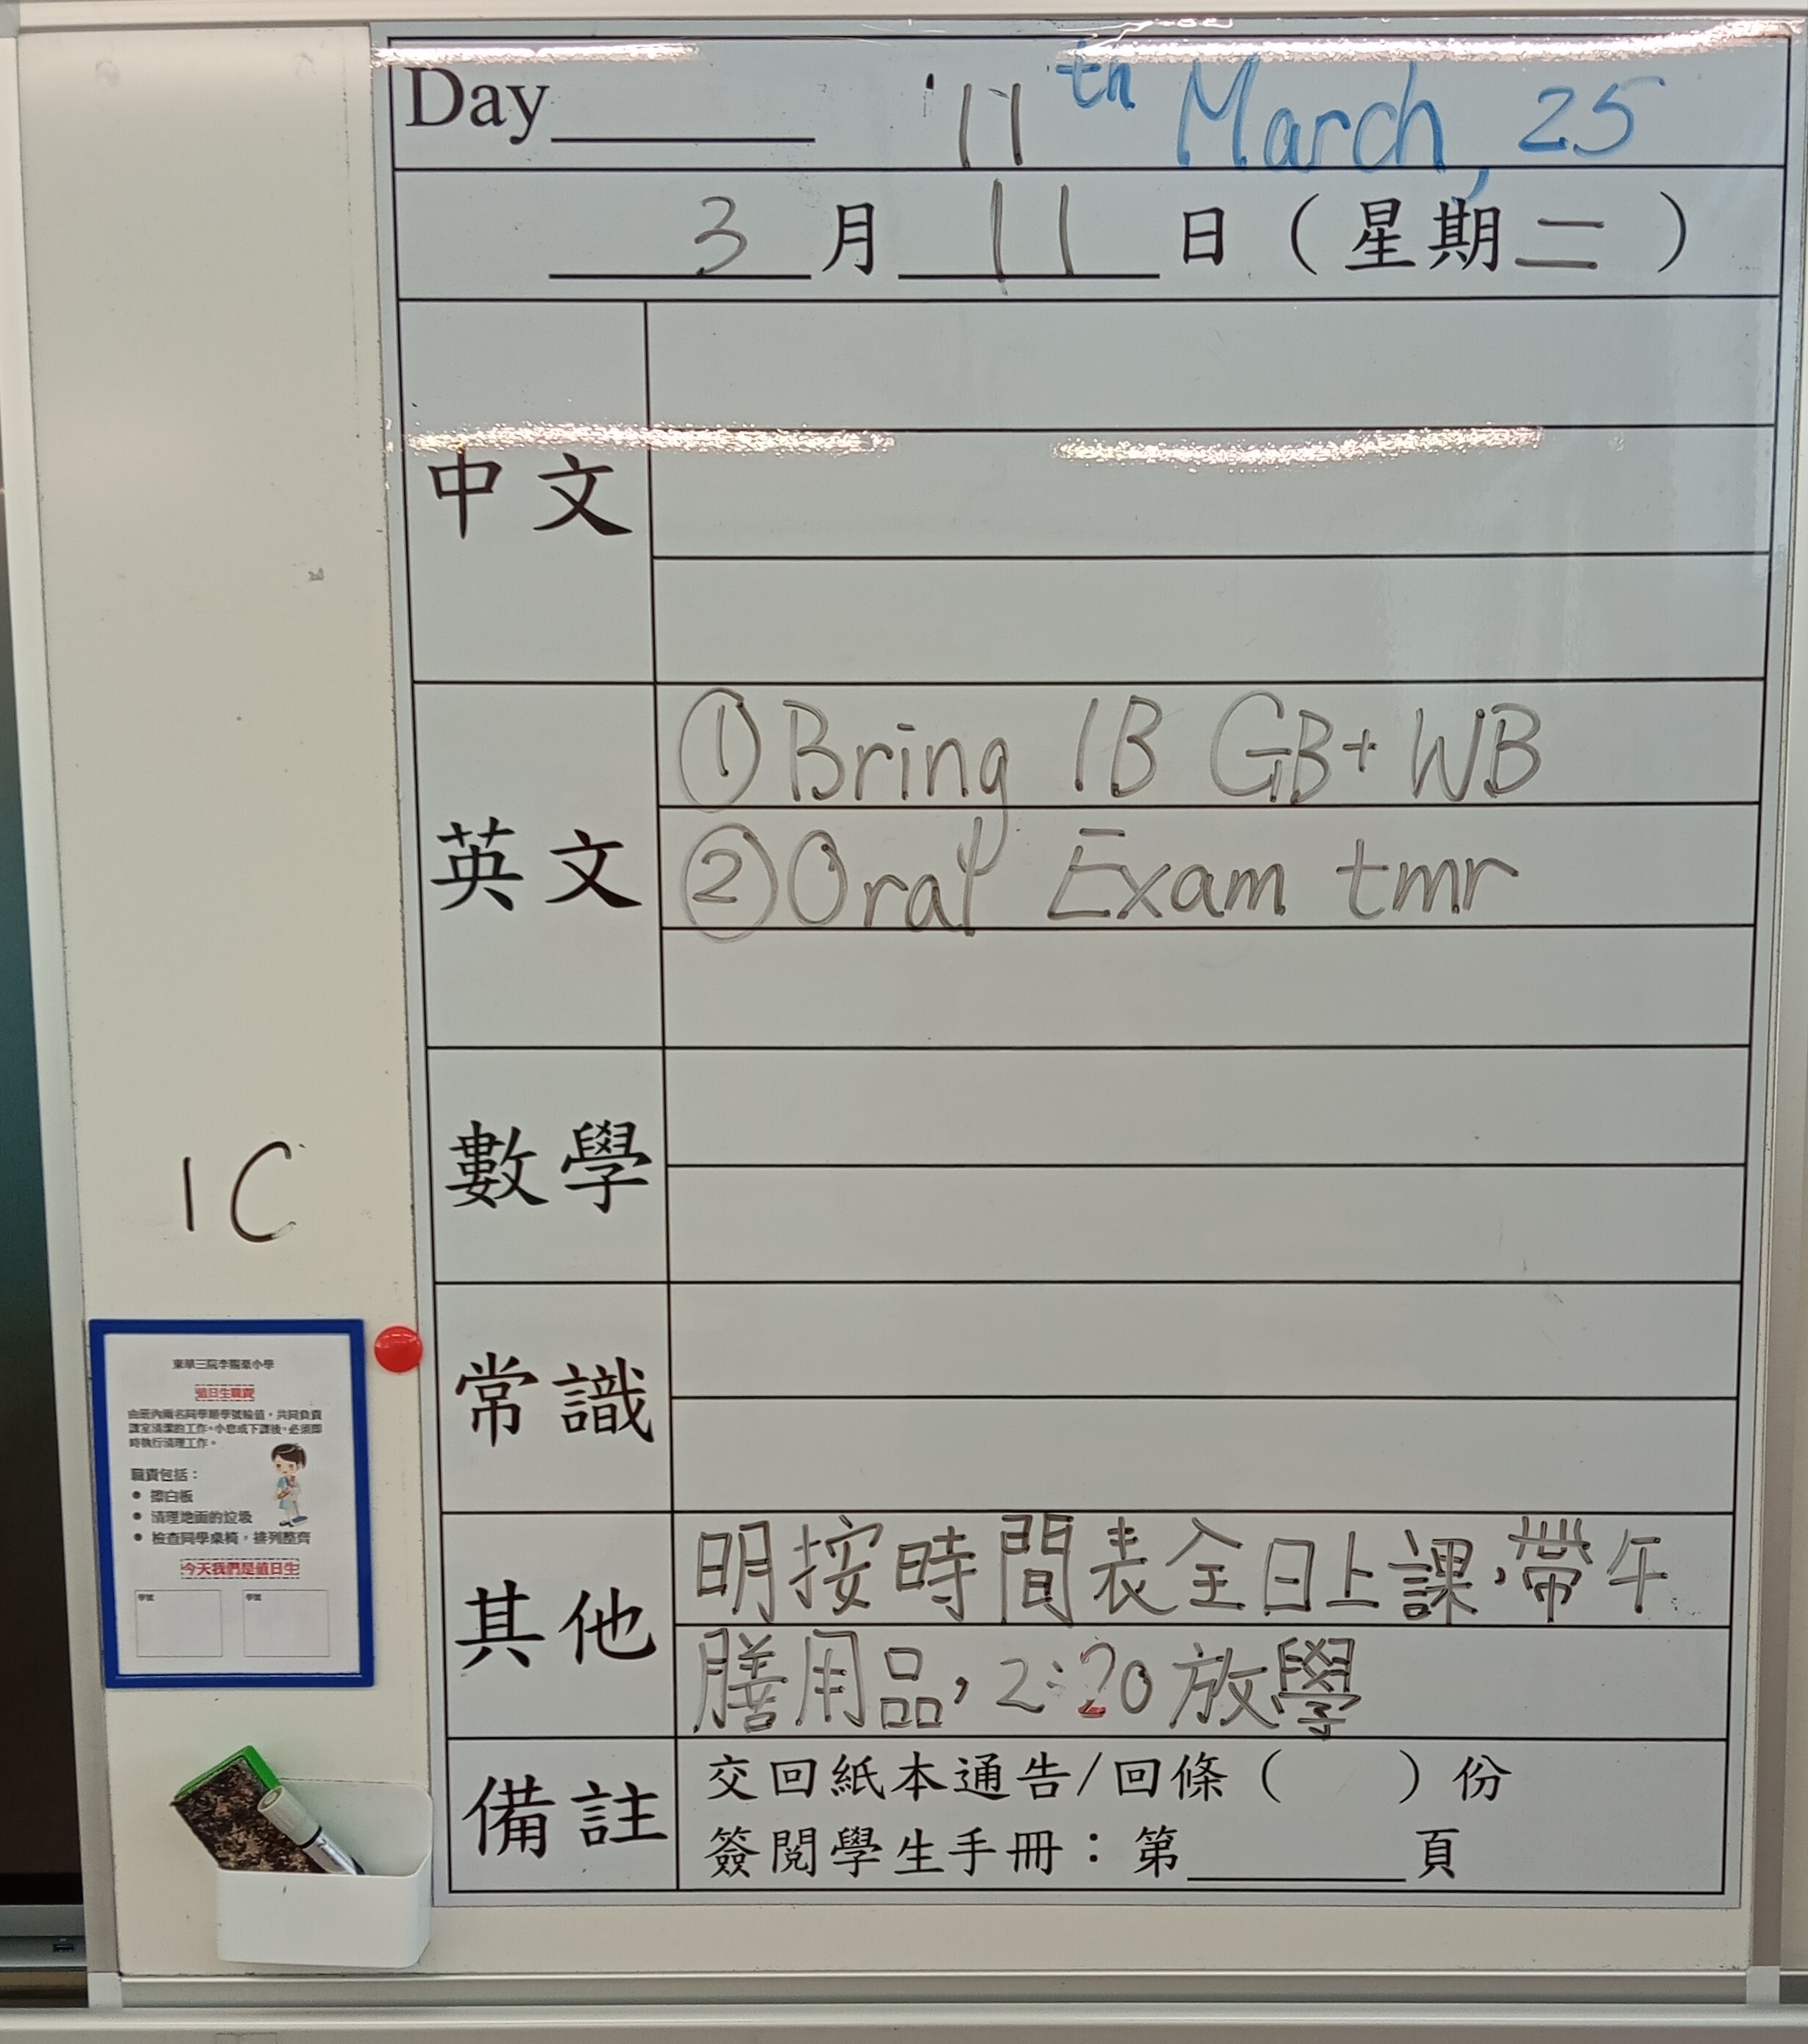 Day 11th March, 25
3月11日(星期二)
中文
英文
①Bring 1B GB+WB
②Oral Exam tmr
數學
1C
常識
東華三院李賜豪小學
值日生職責
由班內兩名同學順學號輪值,共同負責
課室清潔的工作。小息或下課後,必須即
時執行清理工作。
職責包括:
● 擦白板
● 清理地面的垃圾
● 檢查同學桌椅,排列整齊
今天我們是值日生
學號 學號
其他
明按時間表全日上課,帶午
膳用品,2:20放學
備註
交回紙本通告/回條( )份
簽閱學生手冊:第______頁